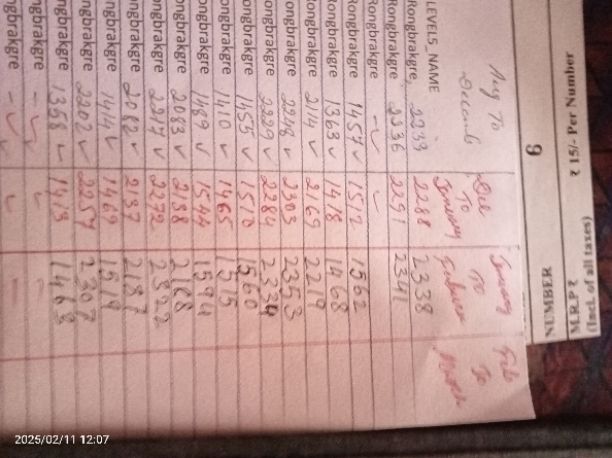 6
NUMBER
M.R.P ₹ ₹ 15/- Per Number
(Incl. of all taxes)
LEVEL5_NAME Aug To Decemb Dec To January January To Feb To March
Rongbrakgre 2233 2288 2338
Rongbrakgre 2236 2291 2341
Rongbrakgre - ✓ ✓
Rongbrakgre 1457 ✓ 1512 1562
Rongbrakgre 1363 ✓ 1418 1468
Rongbrakgre 2114 ✓ 2169 2219
Rongbrakgre 2248 ✓ 2303 2353
Rongbrakgre 2229 ✓ 2284 2334
Rongbrakgre 1455 ✓ 1510 1560
Rongbrakgre 1410 ✓ 1465 1515
Rongbrakgre 1489 ✓ 1544 1594
ongbrakgre 2083 ✓ 2138 2188
ongbrakgre 2217 ✓ 2272 2322
ongbrakgre 2082 ✓ 2137 2187
ongbrakgre 1414 ✓ 1469 1519
ongbrakgre 2202 ✓ 2257 2307
ngbrakgre 1358 ✓ 1413 1463
ngbrakgre - ✓
ngbrakgre - ✓ ✓
2025/02/11 12:07